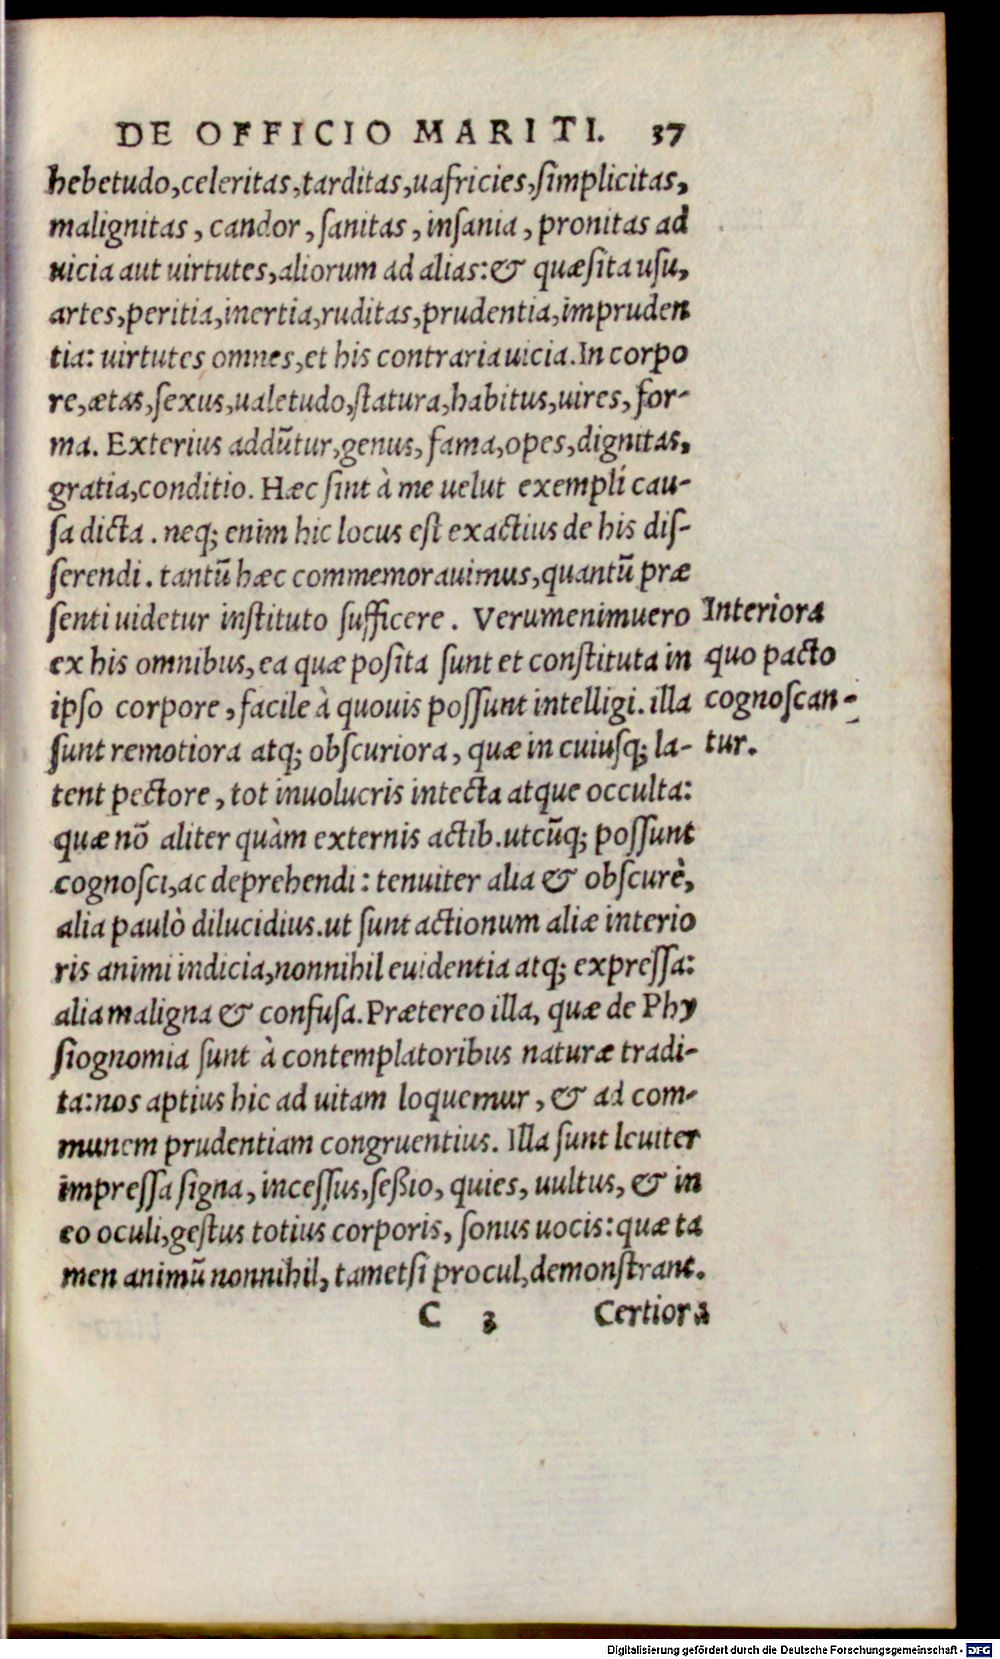 DE OFFICIO MARITI. 37
hebetudo, celeritas, tarditas, uafricies, ſimplicitas,
malignitas, candor, ſanitas, inſania, pronitas ad
uicia aut uirtutes, aliorum ad alias: & quæſita uſu,
artes, peritia, inertia, ruditas, prudentia, impruden
tia: uirtutes omnes, et his contraria uicia. In corpo
re, ætas, ſexus, ualetudo, ſtatura, habitus, uires, for-
ma. Exterius addūtur, genus, fama, opes, dignitas,
gratia, conditio. Hæc ſint à me uelut exempli cau-
ſa dicta. neq; enim hic locus eſt exactius de his diſ-
ſerendi. tantū hæc commemorauimus, quantū præ
ſenti uidetur inſtituto ſufficere. Verumenimuero
ex his omnibus, ea quæ poſita ſunt et conſtituta in
ipſo corpore, facile à quouis poſſunt intelligi. illa
ſunt remotiora atq; obſcuriora, quæ in cuiuſq; la-
tent pectore, tot inuolucris intecta atque occulta:
quæ nō aliter quàm externis actib. utcūq; poſſunt
cognoſci, ac deprehendi: tenuiter alia & obſcurè,
alia paulò dilucidius. ut ſunt actionum aliæ interio
ris animi indicia, nonnihil euidentia atq; expreſſa:
alia maligna & confuſa. Prætereo illa, quæ de Phy
ſiognomia ſunt à contemplatoribus naturæ tradi-
ta: nos aptius hic ad uitam loquemur, & ad com-
munem prudentiam congruentius. Illa ſunt leuiter
impreſſa ſigna, inceſſus, ſeßio, quies, uultus, & in
eo oculi, geſtus totius corporis, ſonus uocis: quæ ta
men animū nonnihil, tametſi procul, demonſtrant.
C 3 Certiora
Interiora
quo pacto
cognoſcan-
tur.
Digitalisierung gefördert durch die Deutsche Forschungsgemeinschaft - DFG